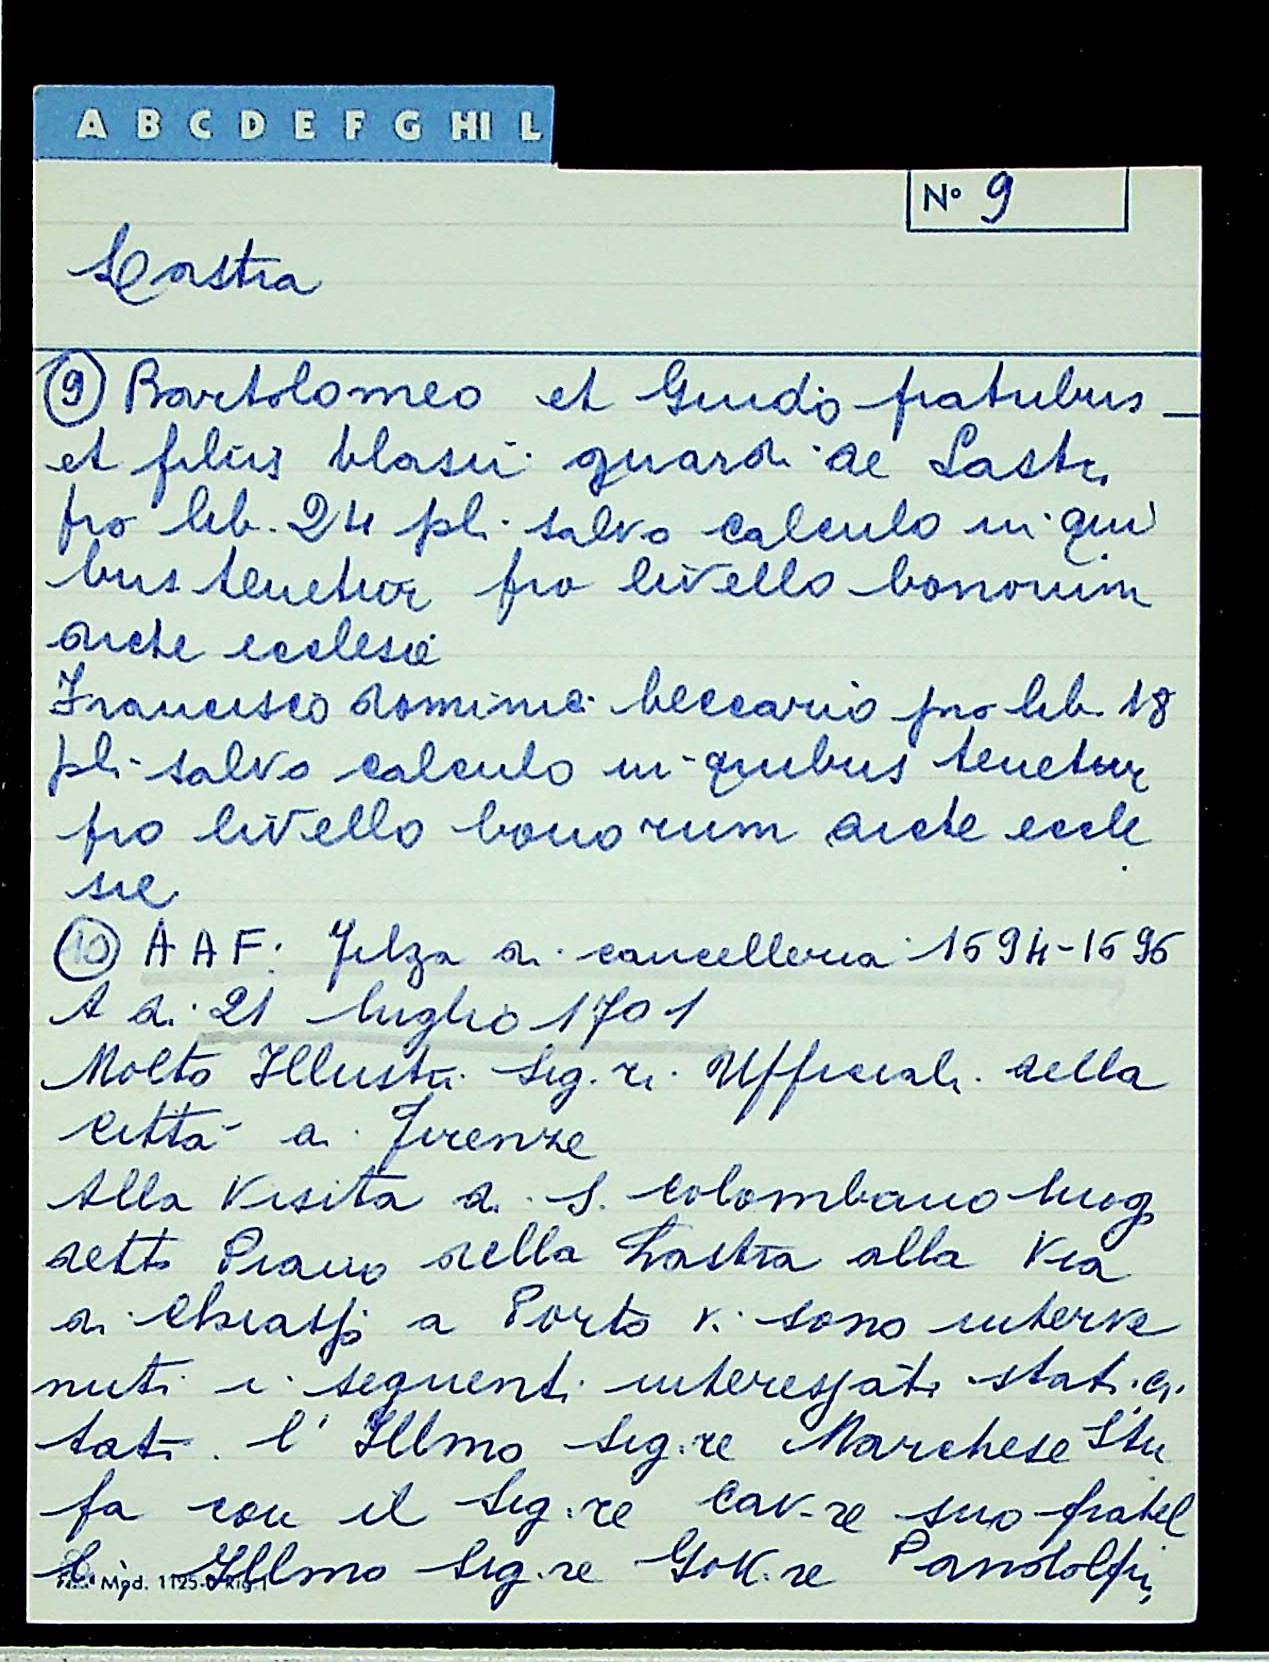 A B C D E F G HI L
N° 9
Lastra
⑨ Bartolomeo et Guido fratribus
et filiis blasii guardi de Lastr.
pro lib. 24 pl. salvo calculo in qui
bus tenetur pro livello bonorum
dicte ecclesie
Francisco dominici beccario pro lib. 18
pl. salvo calculo in quibus tenetur
pro livello bonorum dicte eccle
sie
⑩ A A F. Filza di cancelleria 1694-1696
A di 21 luglio 1701
Molto Illustri Sig.ri Ufficiali della
città di Firenze
Alla Visita di S. Colombano luog
detto Piano della Lastra alla Via
di Chiassi a Porto vi sono interve
nuti i seguenti interessati stati ci
tati. l'Illmo Sig.re Marchese Stu
fa con il Sig.re Cav-re suo fratel
Illmo Sig.re Gov.re Pandolfi,
Mod. 1125-